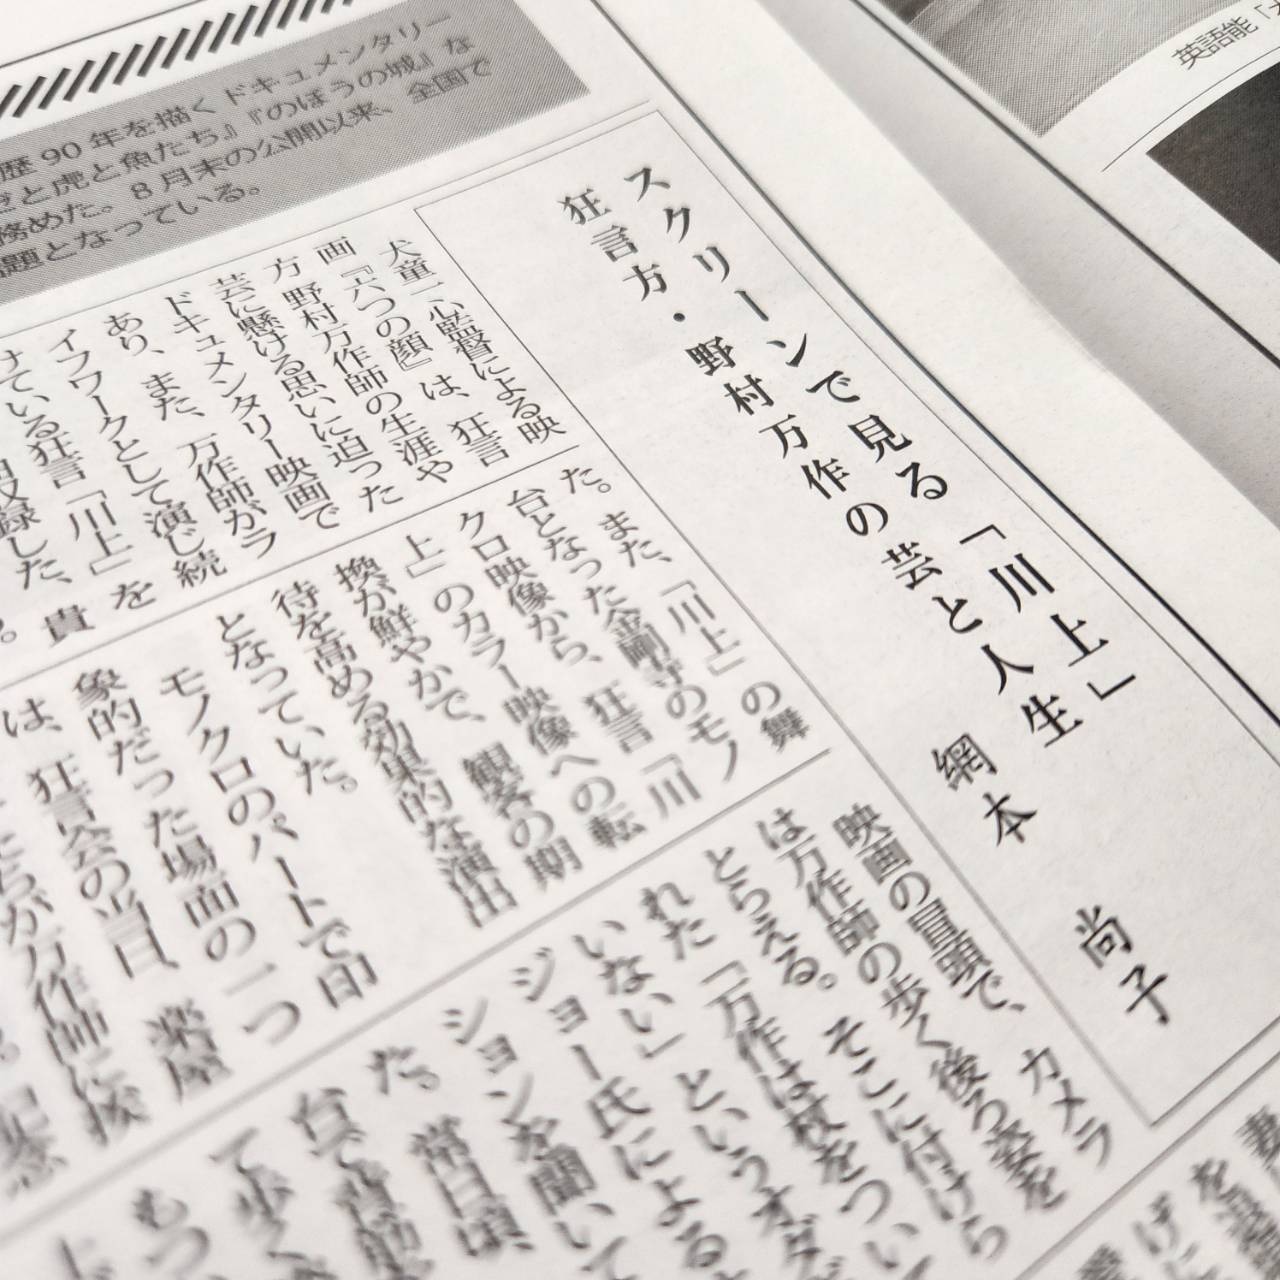 歴90年を描くドキュメンタリー
と虎と魚たち』『のぼうの城』な
務めた。8月末の公開以来、全国で
題となっている。
英語能「
スクリーンで見る「川上」
狂言方・野村万作の芸と人生
網本 尚子
犬童一心監督による映
画『六つの顔』は、狂言
方 野村万作師の生涯や
芸に懸ける思いに迫った
ドキュメンタリー映画で
あり、また、万作師がラ
イフワークとして演じ続
けている狂言「川上」を
収録した、貴
た。また、「川上」の舞
台となった金剛寺のモノ
クロ映像から、狂言「川
上」のカラー映像への転
換が鮮やかで、観客の期
待を高める効果的な演出
となっていた。
モノクロのパートで印
象的だった場面の一つ
は、狂言会の当日、楽屋
たちが万作師に挨
映画の冒頭で、カメラ
は万作師の歩く後ろ姿を
とらえる。そこに付けら
れた「万作は杖をつい
いない」というオダ
ジョー氏による
ションを聞いて
た。常日頃、
台で
て歩く
もつ